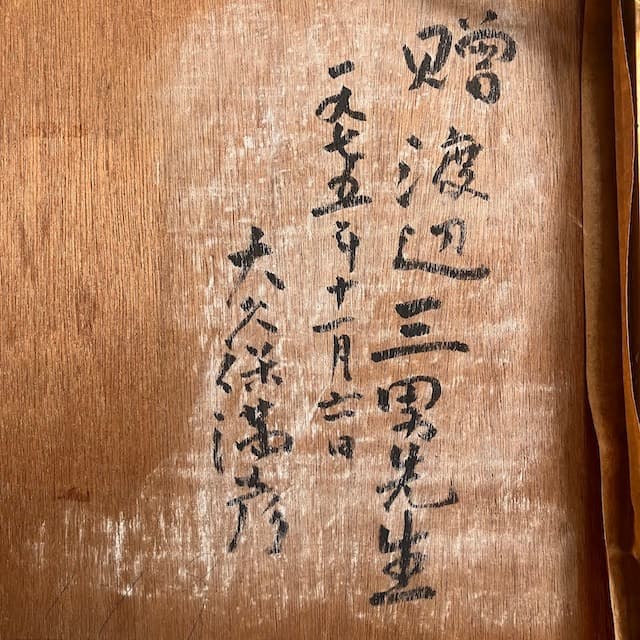 贈 渡辺三男先生
一九七五年十一月六日
大久保満彦